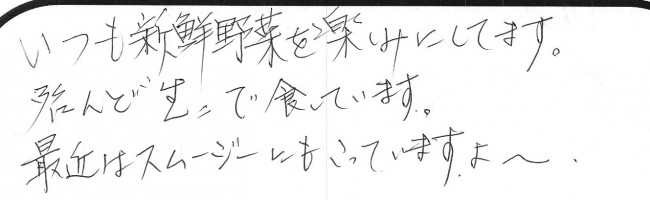 いつも新鮮野菜を楽しみにしてます。
殆んど生で食しています。
最近はスムージーにもこっていますよ〜.